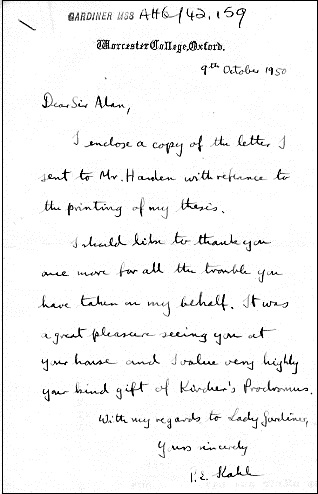 GARDINER MSS AHG/42.159
Worcester College, Oxford.
9th October 1950
Dear Sir Alan,
I enclose a copy of the letter I
sent to Mr. Harden with refrance to
the printing of my thesis.
I should like to thank you
once more for all the trouble you
have taken on my behalf. It was
a great pleasure seeing you at
your house and I value very highly
your kind gift of Kircher's Prodromus.
With my regards to Lady Gardiner,
Yours sincerely
P.E. Kahle